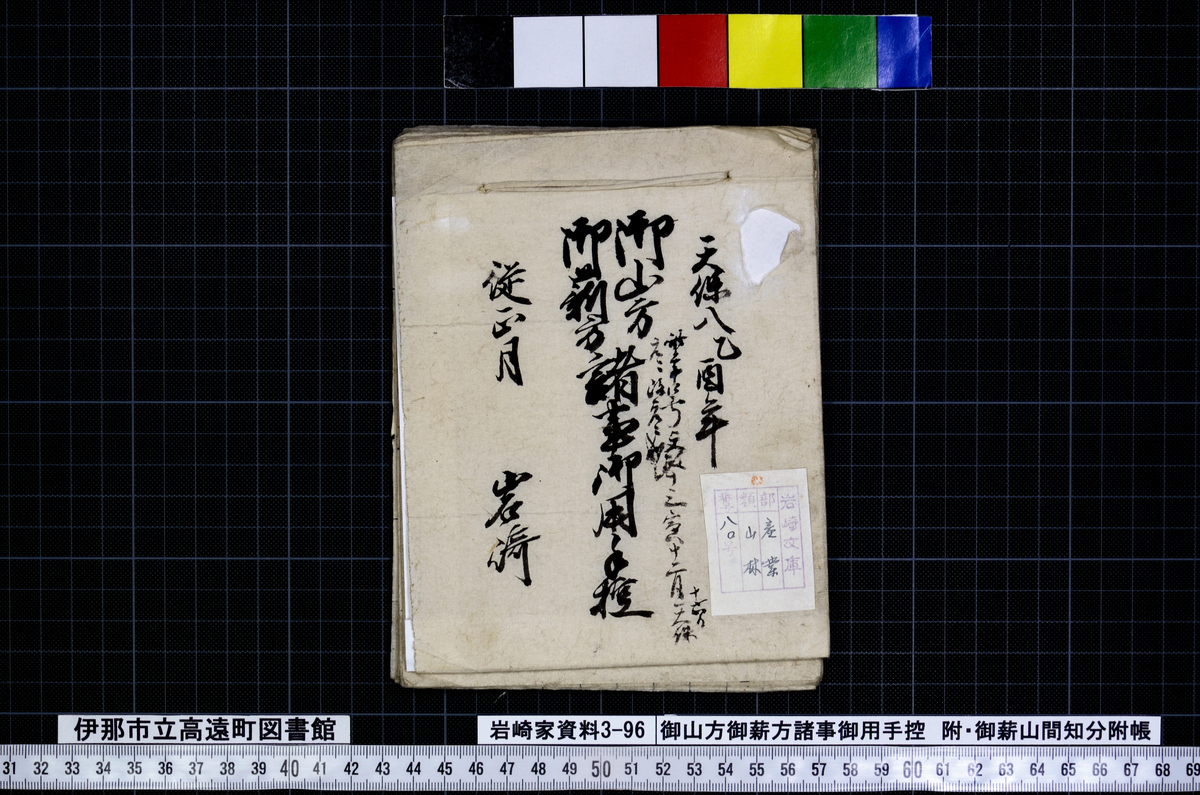 天保八乙酉年
御山方
御薪方
諸事御用手控
従正月
岩崎
岩崎文庫
部 産業
類 山林
八〇
伊那市立高遠町図書館
岩崎家資料3-96
御山方御薪方諸事御用手控 附・御薪山間知分附帳
31 32 33 34 35 36 37 38 39 40 41 42 43 44 45 46 47 48 49 50 51 52 53 54 55 56 57 58 59 60 61 62 63 64 65 66 67 68 69